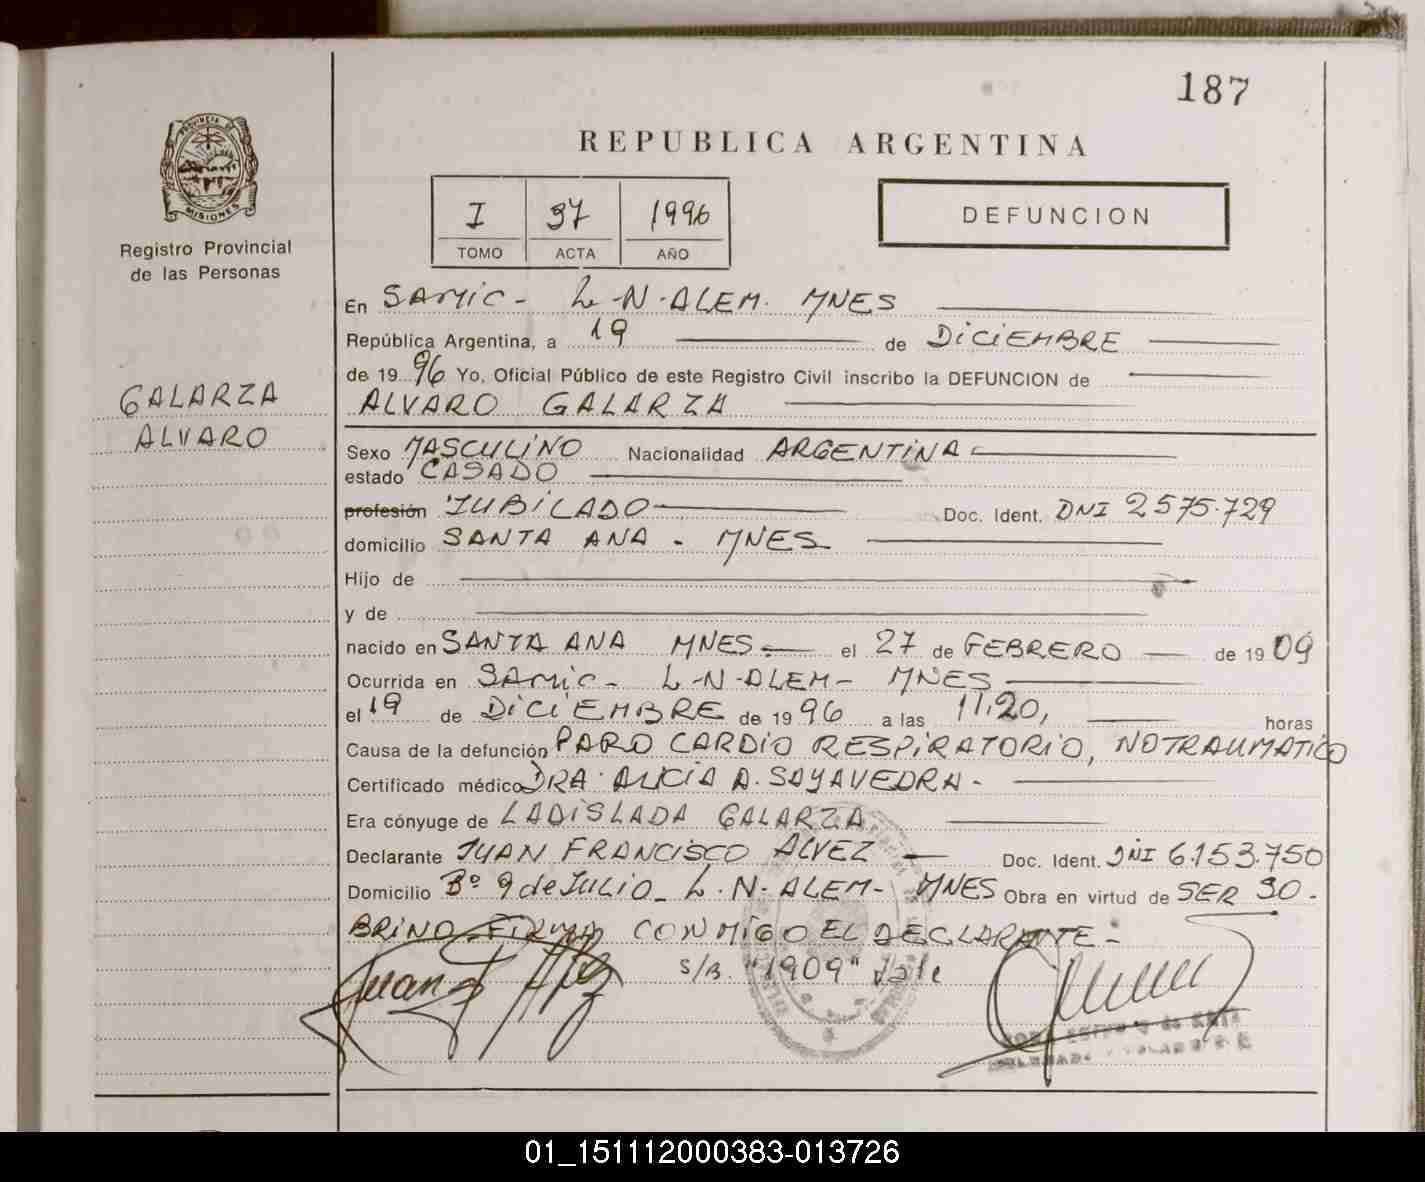 187
PROVINCIA DE
MISIONES
Registro Provincial
de las Personas
GALARZA
ALVARO
REPUBLICA ARGENTINA
I 37 1996
TOMO ACTA AÑO
DEFUNCION
En SAMIC - L-N-ALEM. MNES
República Argentina, a 19 de DICIEMBRE
de 1996 Yo, Oficial Público de este Registro Civil inscribo la DEFUNCION de
ALVARO GALARZA
Sexo MASCULINO Nacionalidad ARGENTINA
estado CASADO
profesión JUBILADO Doc. Ident. DNI 2575.729
domicilio SANTA ANA - MNES
Hijo de
y de
nacido en SANTA ANA MNES el 27 de FEBRERO de 1909
Ocurrida en SAMIC - L-N-ALEM - MNES
el 19 de DICIEMBRE de 1996 a las 11,20, horas
Causa de la defunción PARO CARDIO RESPIRATORIO, NO TRAUMATICO
Certificado médico DRA. ALICIA A. SAYAVEDRA -
Era cónyuge de LADISLADA GALARZA
Declarante JUAN FRANCISCO ALVEZ Doc. Ident. DNI 6.153.750
Domicilio Bº 9 de JULIO - L.N-ALEM- MNES Obra en virtud de SER SO-
BRINO FIRMA CONMIGO EL DECLARANTE -
S/B. "1909" Vale
01_151112000383-013726